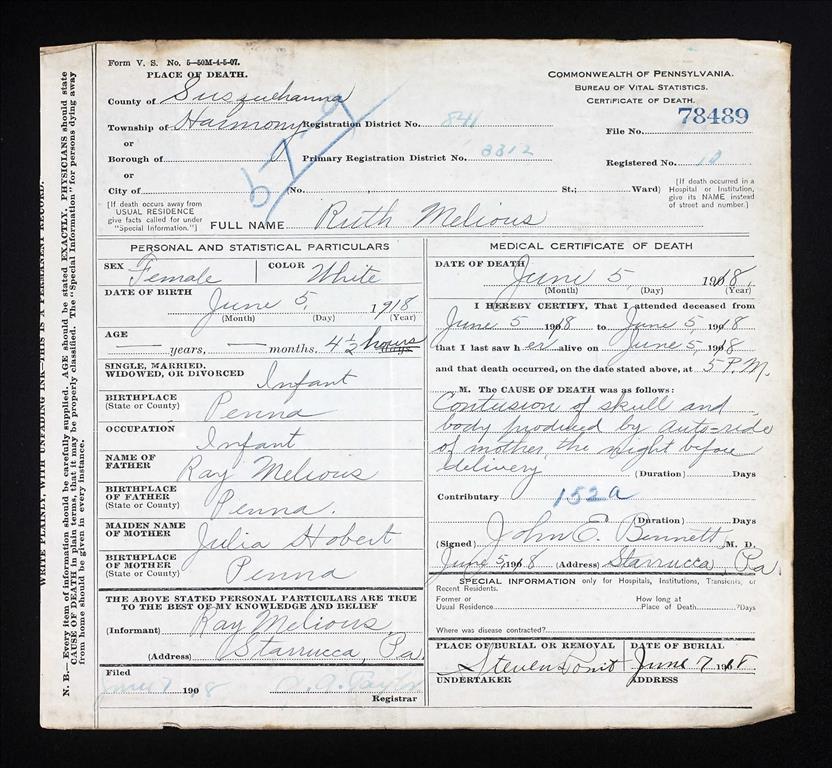 Form V. S. No. 5—50M-4-5-07.
PLACE OF DEATH.
County of Susquehanna
Township of Harmony
or
Borough of
or
City of
[If death occurs away from
USUAL RESIDENCE
give facts called for under
"Special Information."]
Registration District No. 841
Primary Registration District No. 3312
No. , St.; Ward)
COMMONWEALTH OF PENNSYLVANIA.
BUREAU OF VITAL STATISTICS.
CERTIFICATE OF DEATH.
78489
File No.
Registered No. 10
[If death occurred in a
Hospital or Institution,
give its NAME instead
of street and number.]
FULL NAME Ruth Melious
PERSONAL AND STATISTICAL PARTICULARS
SEX Female COLOR White
DATE OF BIRTH
June 5, 1918
(Month) (Day) (Year)
AGE
— years, — months. 4½ hours days
SINGLE, MARRIED,
WIDOWED, OR DIVORCED Infant
BIRTHPLACE
(State or County) Penna
OCCUPATION Infant
NAME OF
FATHER Ray Melious
BIRTHPLACE
OF FATHER
(State or County) Penna.
MAIDEN NAME
OF MOTHER Julia Hobert
BIRTHPLACE
OF MOTHER
(State or County) Penna
THE ABOVE STATED PERSONAL PARTICULARS ARE TRUE
TO THE BEST OF MY KNOWLEDGE AND BELIEF
(Informant) Ray Melious,
(Address) Starrucca, Pa
Filed
June 7 1908
Registrar
MEDICAL CERTIFICATE OF DEATH
DATE OF DEATH June 5, 1918,
(Month) (Day) (Year)
I HEREBY CERTIFY, That I attended deceased from
June 5 1918 to June 5, 1918
that I last saw her alive on June 5, 1918
and that death occurred, on the date stated above, at 5 P.M.
M. The CAUSE OF DEATH was as follows:
Contusion of skull and
body produced by auto-ride
of mother, the night before
delivery (Duration) Days
Contributary 152a
(Duration) Days
(Signed) John E. Bennett, M. D.
June 5, 1918 (Address) Starrucca, Pa.
SPECIAL INFORMATION only for Hospitals, Institutions, Transients, or
Recent Residents.
Former or
Usual Residence
How long at
Place of Death ?Days
Where was disease contracted?
PLACE OF BURIAL OR REMOVAL
Stevens Point
DATE OF BURIAL
June 7 1918
UNDERTAKER ADDRESS
WRITE PLAINLY, WITH UNFADING INK—THIS IS A PERMANENT RECORD.
N. B.— Every item of information should be carefully supplied. AGE should be stated EXACTLY, PHYSICIANS should state
CAUSE OF DEATH in plain terms, that it may be properly classified. The "Special Information" for persons dying away
from home should be given in every instance.